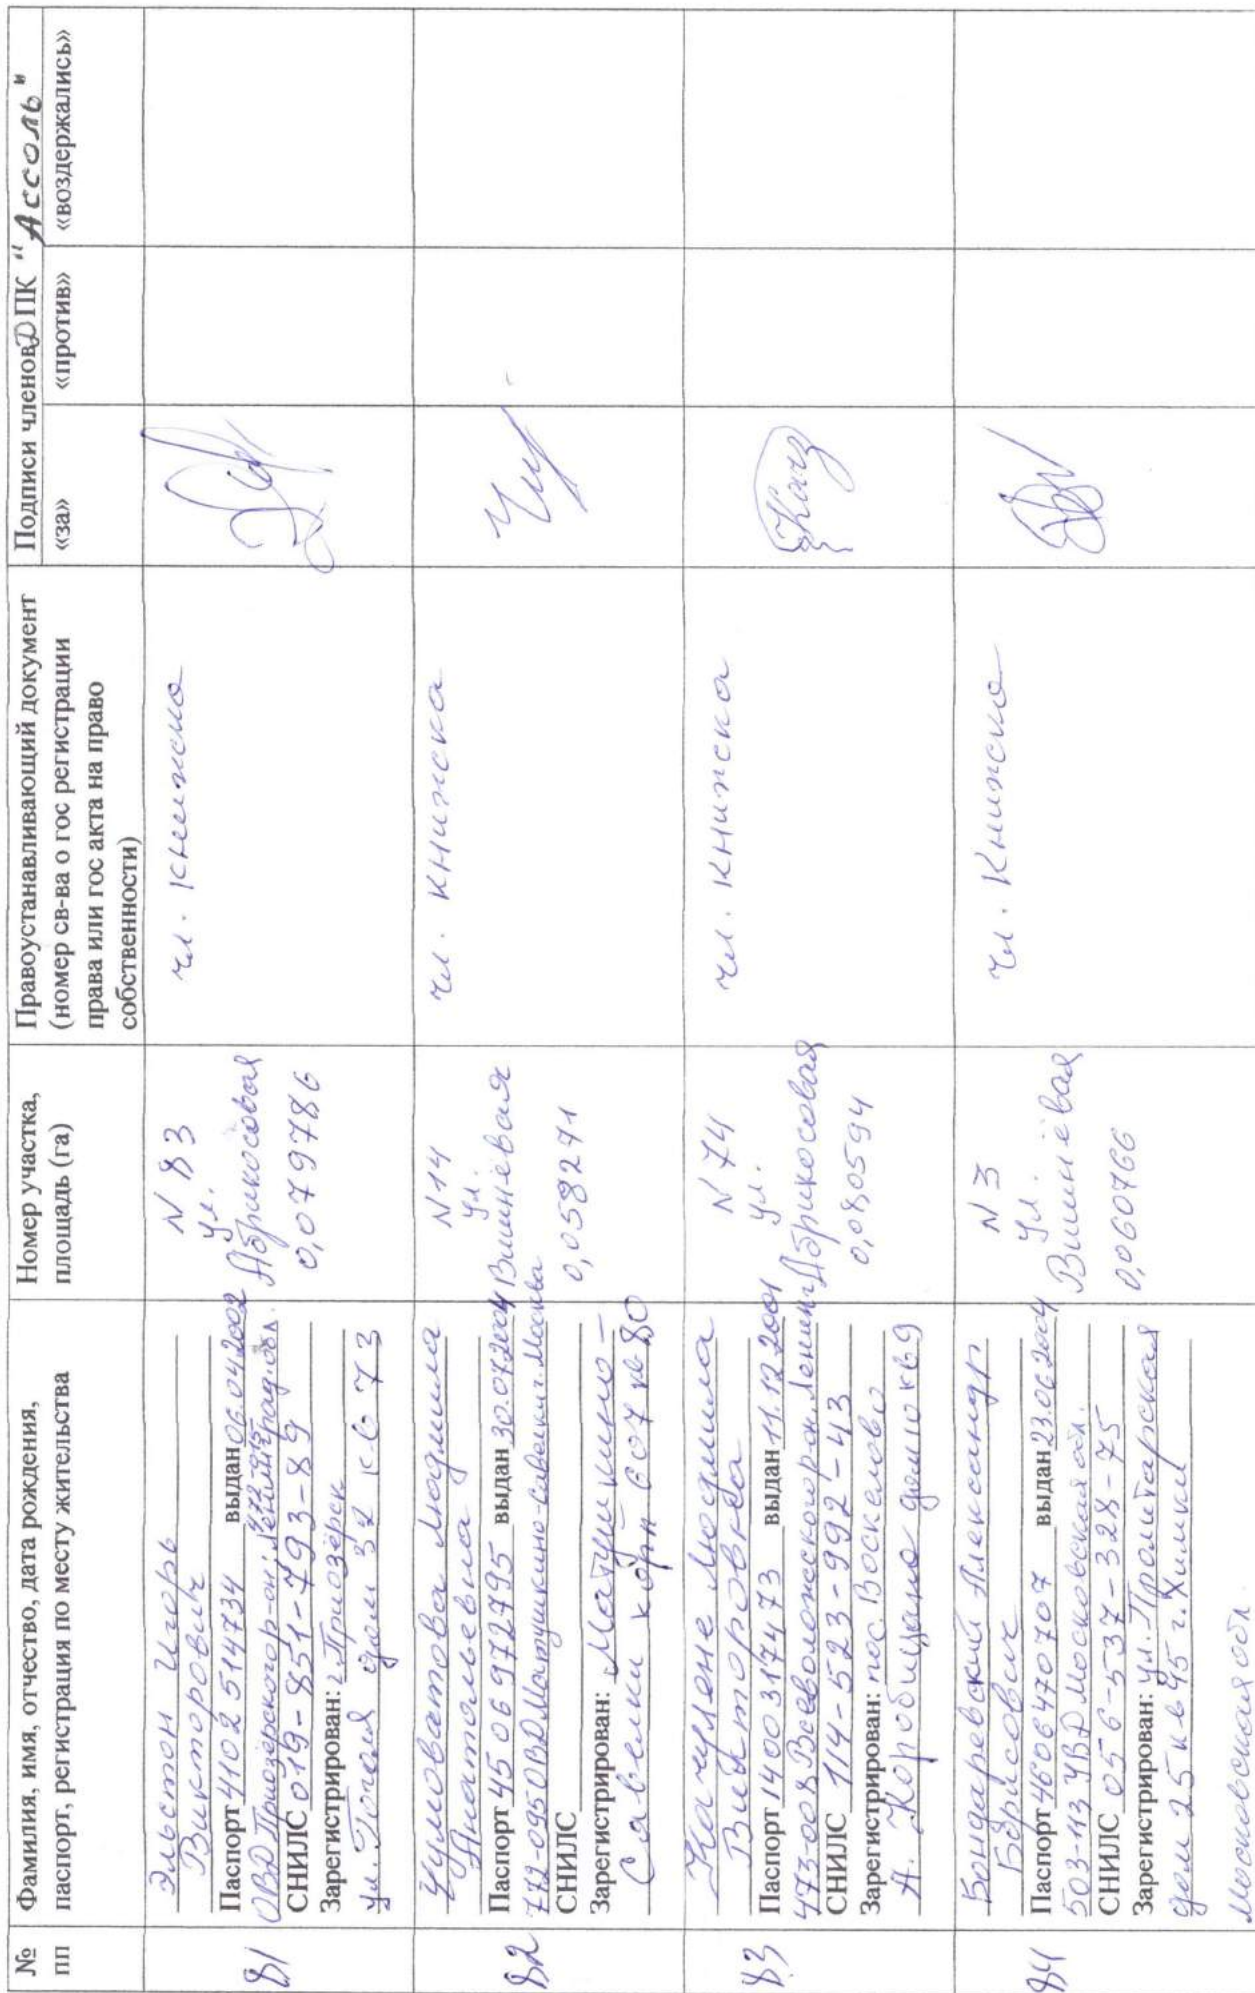 № пп
Фамилия, имя, отчество, дата рождения, паспорт, регистрация по месту жительства
Номер участка, площадь (га)
Правоустанавливающий документ (номер св-ва о гос регистрации права или гос акта на право собственности)
Подписи членов ДПК "Ассоль"
«за»
«против»
«воздержались»
81
Эльстон Игорь
Викторович
Паспорт 4102 514734 выдан 06.04.2002
ОВД Приозерского р-он; Ленинград. обл. 472-015
СНИЛС 019-851-793-89
Зарегистрирован: г. Приозёрск
ул. Гоголя дом 32 кв 73
N 83
ул.
Абрикосовая
0,079786
чл. книжка
82
Анатольевна
Паспорт 45 06 972795 выдан 30.07.2004
772-095 ОВД Матушкино-Савелки г. Москва
СНИЛС
Зарегистрирован: Матушкино-
Савелки корп 607 кв 80
N 14
ул.
Вишнёвая
0,058271
чл. книжка
83
Людмила
Викторовна
Паспорт 1400 317473 выдан 11.12.2001
473-008 Всеволожского р-он. Ленинг
СНИЛС 114-523-992-43
Зарегистрирован: пос. Воскелово
дом 10 кв 9
N 74
ул.
Абрикосовая
0,080594
чл. книжка
84
Бондаревский Александр
Борисович
Паспорт 4606 470707 выдан 23.06.2004
503-113 УВД Московская обл.
СНИЛС 056-537-328-75
Зарегистрирован: ул. Пролетарская
дом 25 кв 45 г. Химки
Московская обл.
N 3
ул.
Вишнёвая
0,060766
чл. книжка